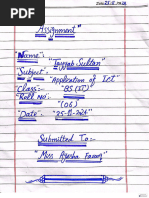 Assignment"
"Name":- "Tayyab Sultan"
"Subject":- "Application of Ict"
"Class":- "BS (IT)
"Roll No":- "(06)
"Date":- "25-11-2024"
Submitted To:-
"Miss Ayesha